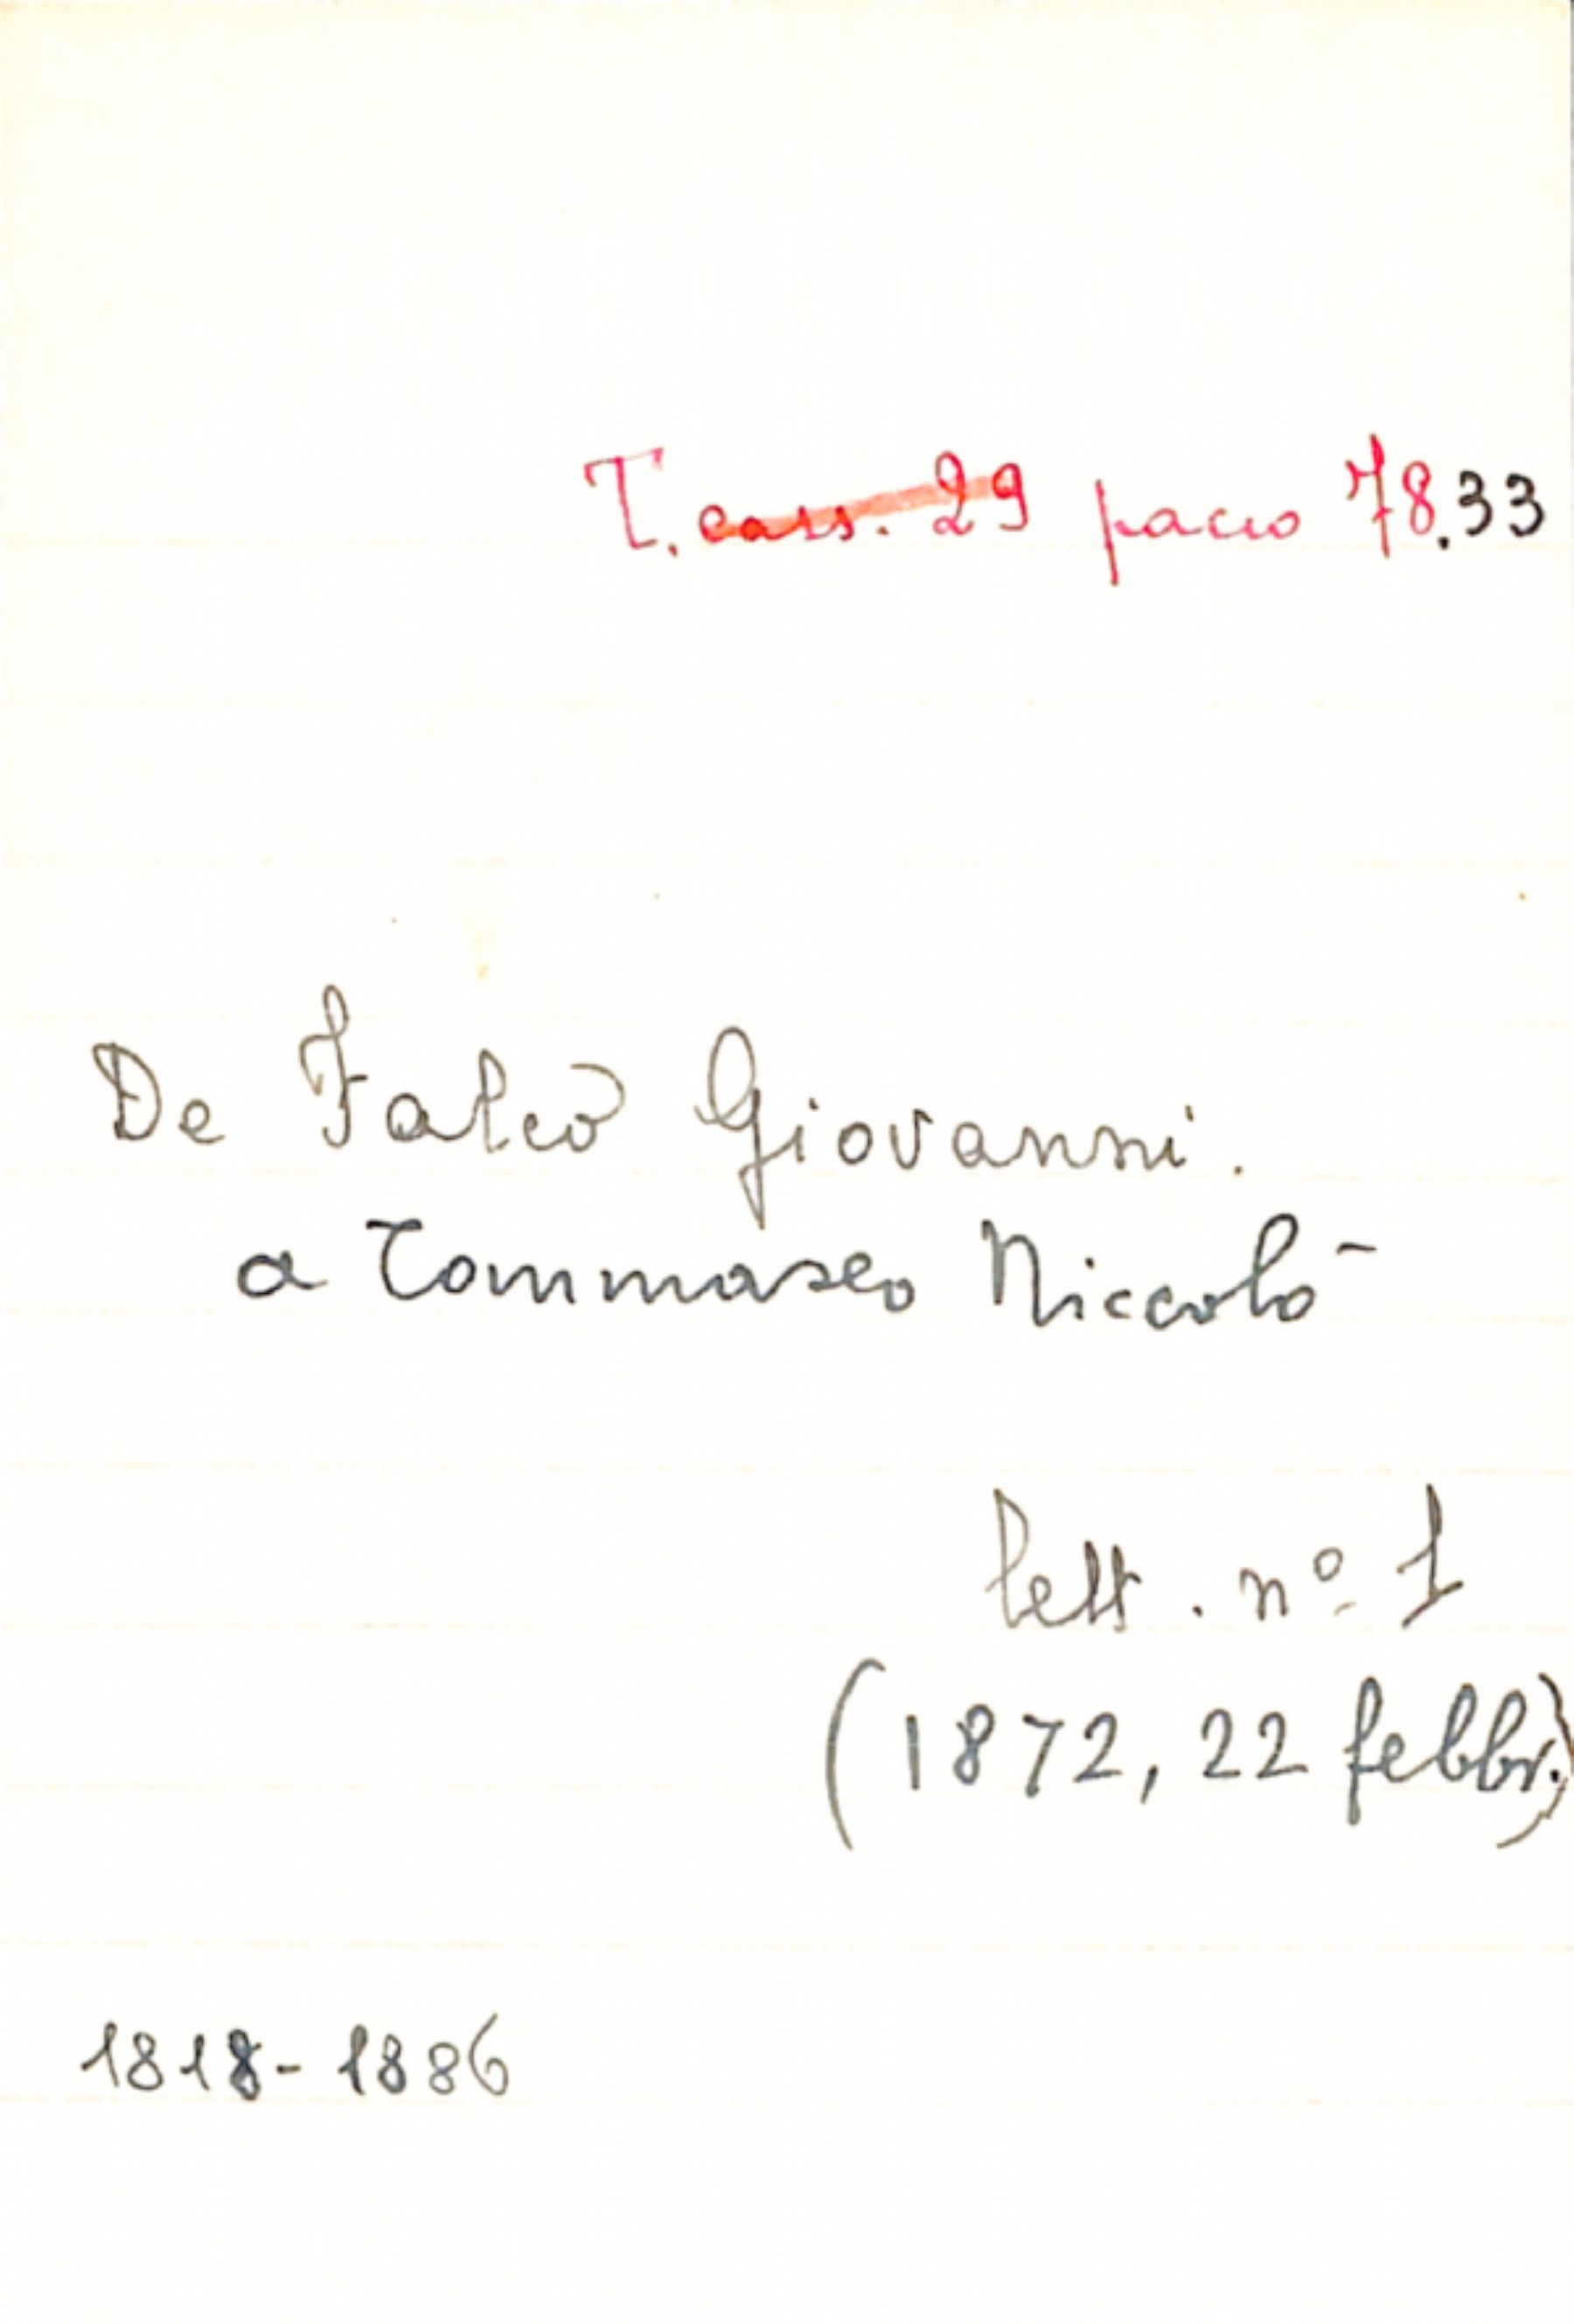 T. cass. 29 pacco 78.33
De Falco Giovanni.
a Tommaseo Niccolò
lett. nº 1
(1872, 22 febbr.)
1818-1886